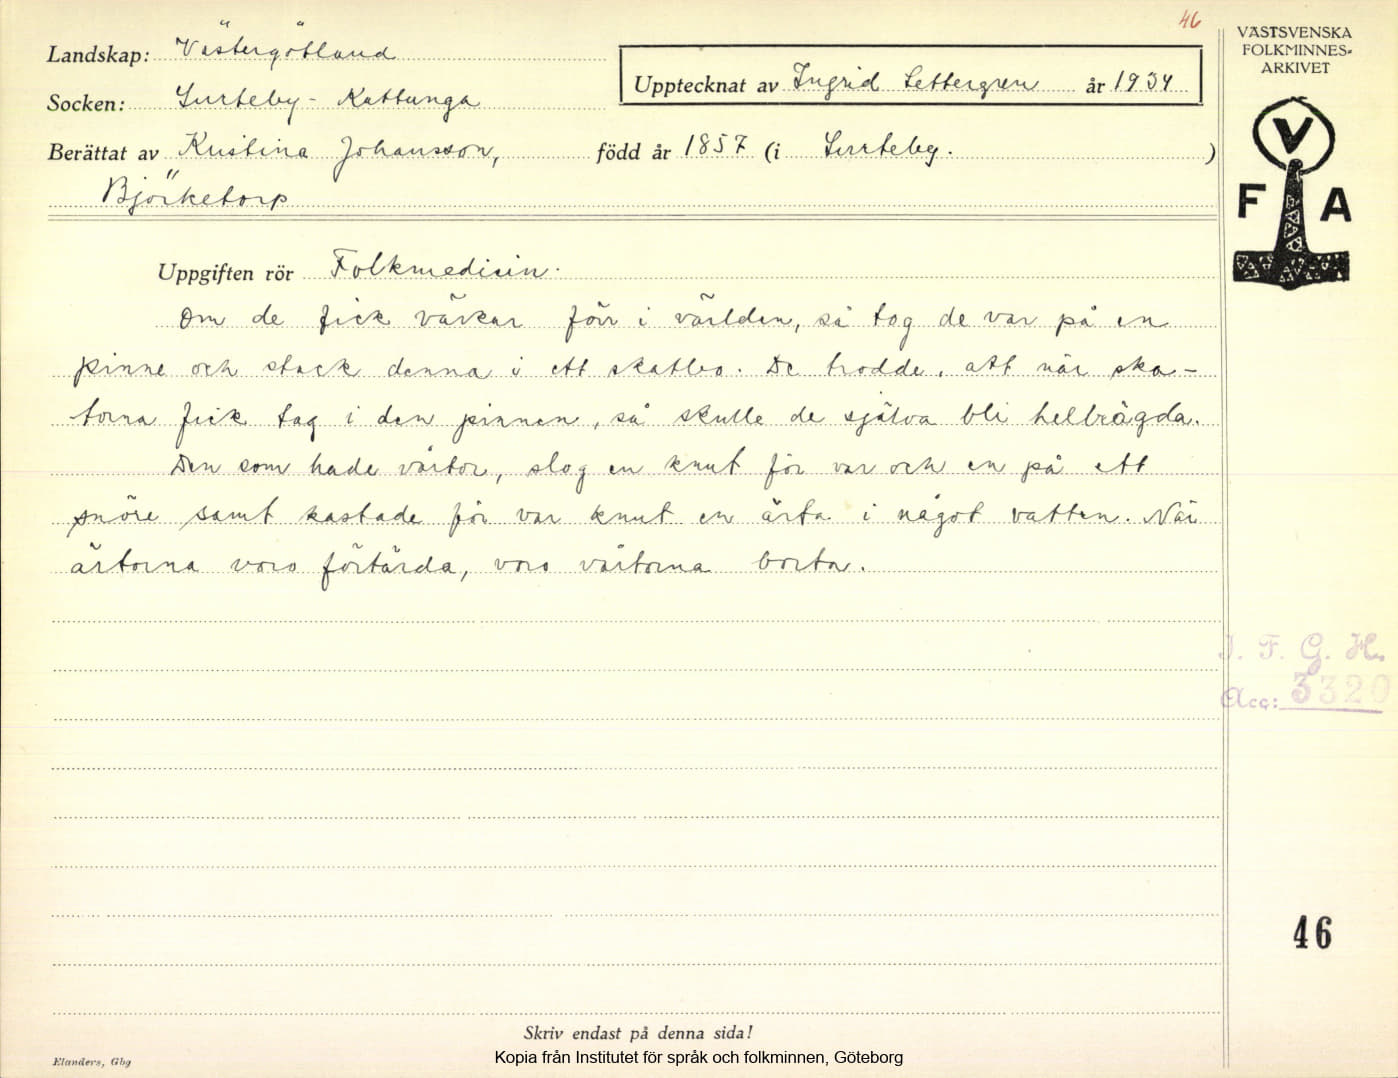 46
VÄSTSVENSKA
FOLKMINNES-
ARKIVET
V
F A
Landskap: Västergötland
Upptecknat av Ingrid Settergren år 1934
Socken: Surteby - Kattunga
Berättat av Kristina Johansson, född år 1857 (i Surteby. )
Björketorp
Uppgiften rör Folkmedicin.
Om de fick värkar förr i världen, så tog de var på en
pinne och stack denna i ett skatbo. De trodde, att när ska-
torna fick tag i den pinnen, så skulle de själva bli helbrägda.
Den som hade vårtor, slog en knut för var och en på ett
snöre samt kastade för var knut en ärta i något vatten. När
ärtorna voro förtärda, voro vårtorna borta.
I. F. G. H.
Acc: 3320
46
Skriv endast på denna sida!
Elanders, Gbg
Kopia från Institutet för språk och folkminnen, Göteborg